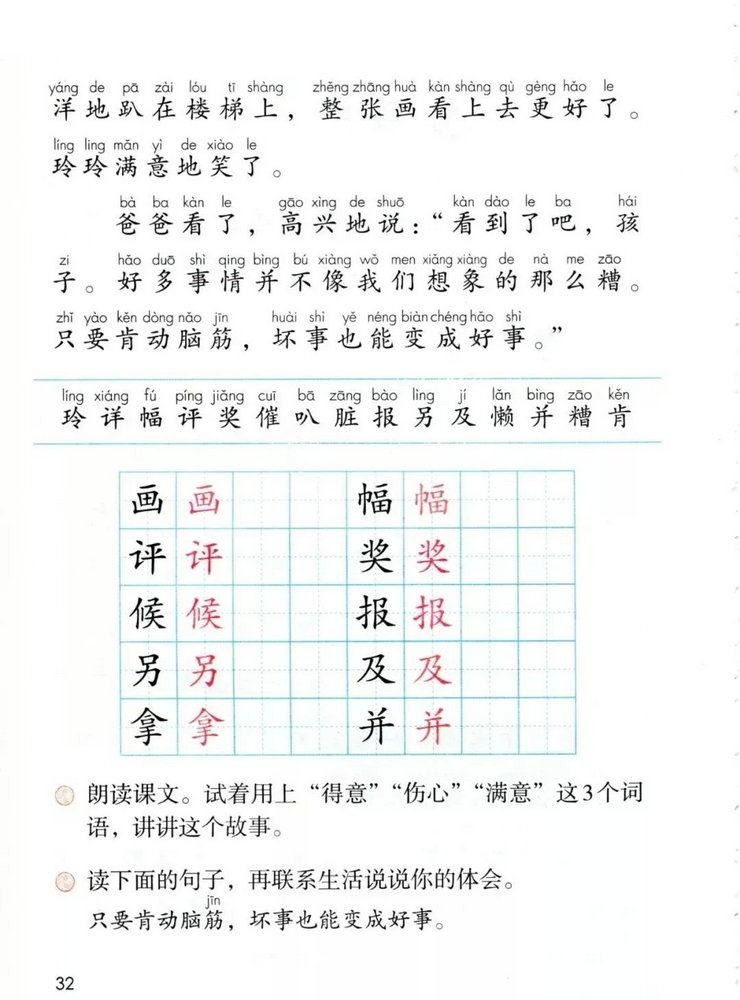 yáng de pā zài lóu tī shàng zhěng zhāng huà kàn shàng qù gèng hǎo le
洋地趴在楼梯上，整张画看上去更好了。
líng ling mǎn yì de xiào le
玲玲满意地笑了。
bà ba kàn le gāo xìng de shuō kàn dào le ba hái
爸爸看了，高兴地说：“看到了吧，孩
zi hǎo duō shì qing bìng bú xiàng wǒ men xiǎng xiàng de nà me zāo
子。好多事情并不像我们想象的那么糟。
zhǐ yào kěn dòng nǎo jīn huài shì yě néng biàn chéng hǎo shì
只要肯动脑筋，坏事也能变成好事。”
líng xiáng fú píng jiǎng cuī bā zāng bào lìng jí lǎn bìng zāo kěn
玲详幅评奖催叭脏报另及懒并糟肯
画画 幅幅
评评 奖奖
候候 报报
另另 及及
拿拿 并并
朗读课文。试着用上“得意”“伤心”“满意”这3个词
语，讲讲这个故事。
读下面的句子，再联系生活说说你的体会。
jīn
只要肯动脑筋，坏事也能变成好事。
32